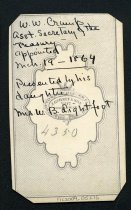 W. W. Crump
Asst. Secretary of the
Treasury
appointed
Mch. 19 - 1864
Presented by his
daughter
Mrs W B Lightfoot
4350